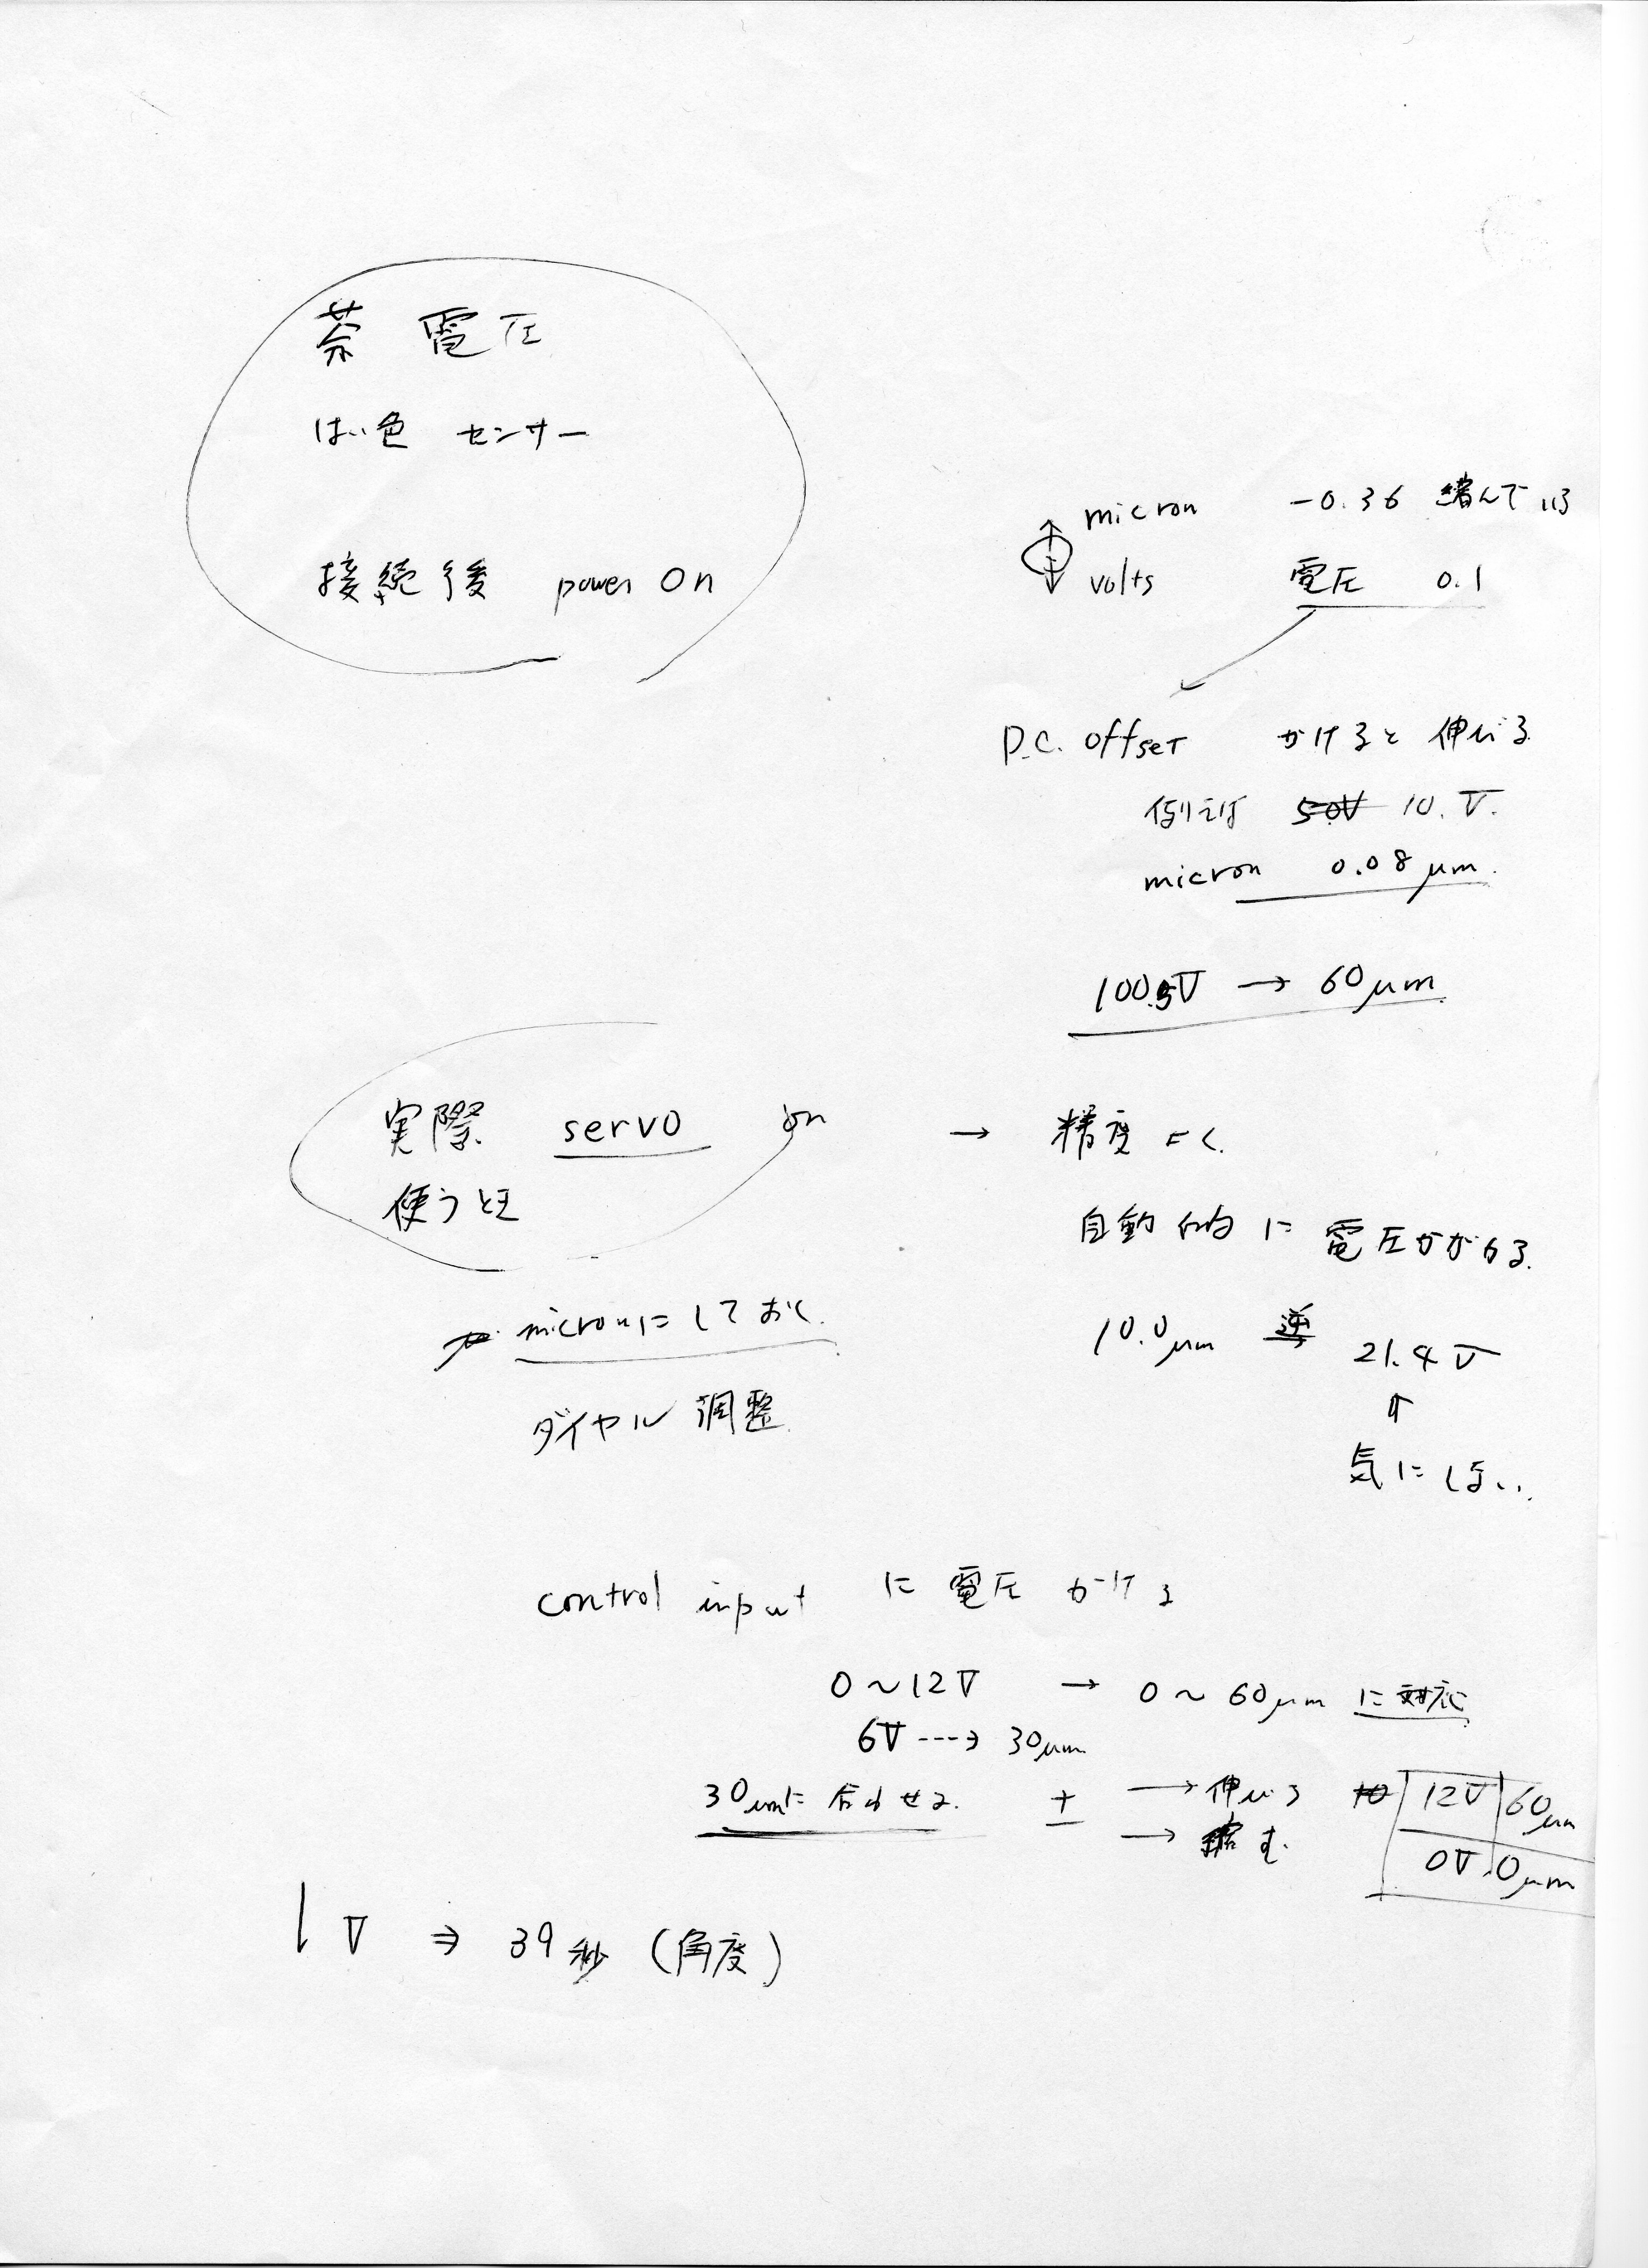 茶 電圧
はい色 センサー
接続後 power on
micron -0.36 縮んでいる
volts 電圧 0.1
D.C. offset かけると 伸びる
例えば 50V 10.V.
micron 0.08μm.
100.5V → 60μm.
実際 servo on → 精度よく
使うとき
自動的に 電圧がかかる.
micronにしておく.
10.0μm 逆 21.4V
ダイヤル 調整
↑
気にしない.
control input に 電圧 かける
0~12V → 0~60μm に対応
6V ---> 30μm
30μmに 合わせる. ± → 伸びる 12V 60μm
→ 縮む. 0V 0μm
1V ⇒ 39秒 (角度)